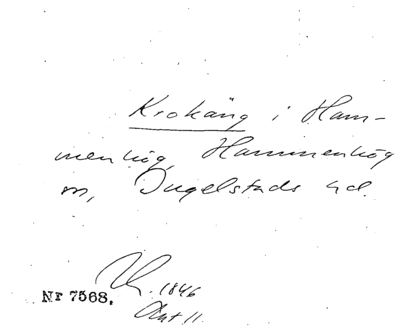 Krokäng i Ham-
menhög, Hammenhög
sn, Ingelstads hd.
Nr 7568.
1846
Akt 11.